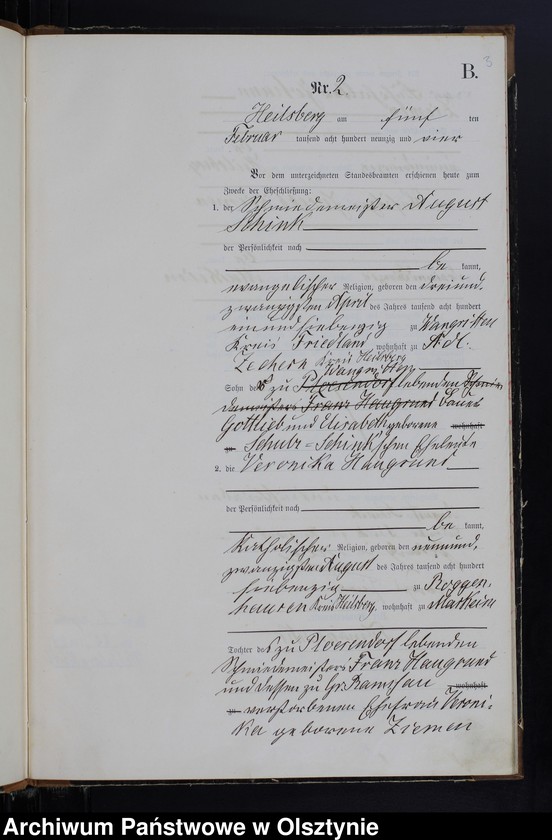 3
B.
Nr. 2
Heilsberg am fünf ten
Februar tausend acht hundert neunzig und vier
Vor dem unterzeichneten Standesbeamten erschienen heute zum
Zwecke der Eheschließung:
1. der Schmiedemeister August
Schink
der Persönlichkeit nach
be kannt,
evangelischer Religion, geboren den dreiund-
zwanzigsten April des Jahres tausend acht hundert
einundsiebenzig zu Wangritten
Kreis Friedland wohnhaft zu Adl.
Zechern Kreis Heilsberg
Wangritten
Sohn des zu Ploessendorf lebenden Schmie-
demeisters Franz Haugrund Bauer
Gottlieb und Elisabeth geborene wohnhaft
zu Schulz-Schink'schen Eheleute
2. die Veronika Haugrund
der Persönlichkeit nach
be kannt,
katholischer Religion, geboren den neunund-
zwanzigsten August des Jahres tausend acht hundert
siebenzig zu Roggen-
hausen Kreis Heilsberg, wohnhaft zu Markeim
Tochter des zu lebenden
Schmiedemeisters Franz Haugrund
und dessen zu Gr. Ramsau wohnhaft
zu verstorbenen Ehefrau Veroni-
ka geborene Ziemen
Archiwum Państwowe w Olsztynie